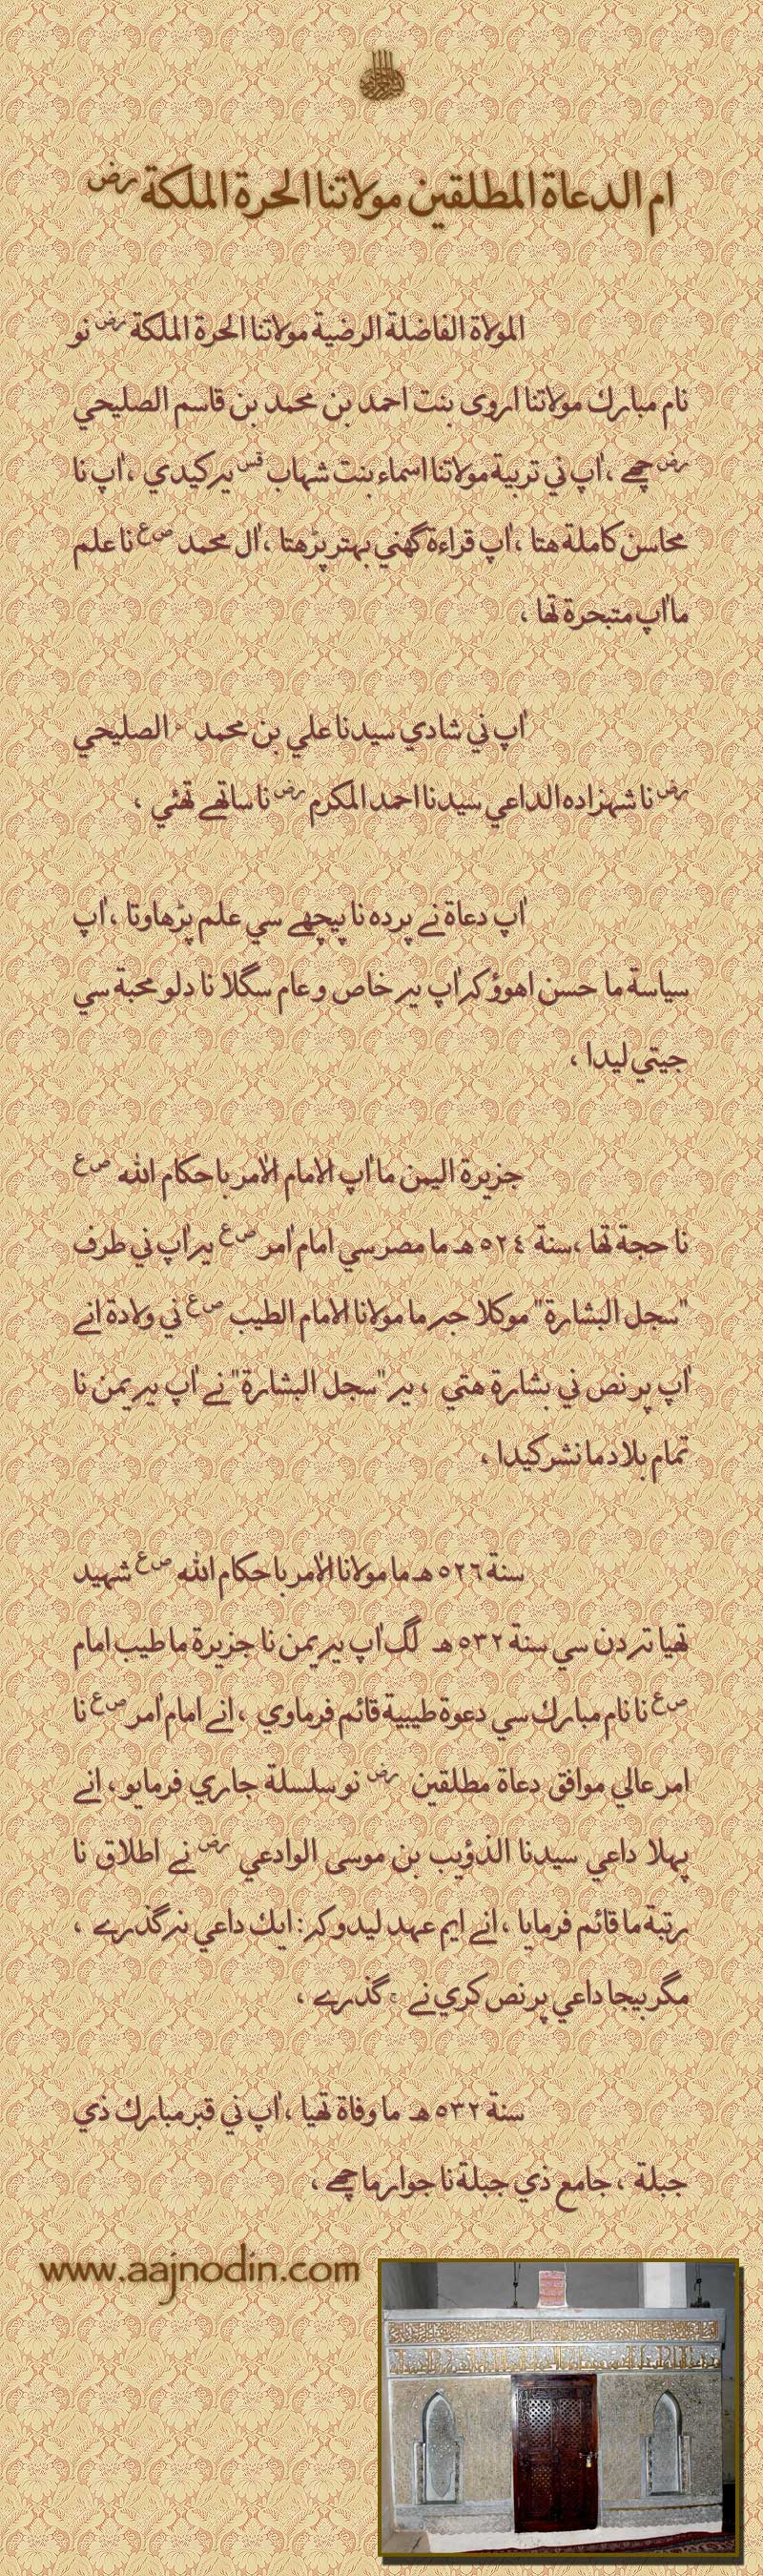 ام الدعاة المطلقين مولاتنا الحرة الملكة رض
المولاة الفاضلة الرضية مولاتنا الحرة الملكة رض نو
نام مبارك مولاتنا اروى بنت احمد بن محمد بن قاسم الصليحي
رض چھے ، اٰپ ني تربية مولاتنا اسماء بنت شهاب قس يہ كيدي ، اٰپ نا
محاسن كاملة هتا ، اٰپ قراءة گهني بهتر پڑهتا ، اٰل محمد ص ع نا علم
ما اٰپ متبحرة تھا ،
اٰپ ني شادي سيدنا علي بن محمد الصليحي
رض نا شهزاده الداعي سيدنا احمد المكرم رض نا ساتھے تھئي ،
اٰپ دعاة نے پرده نا پيچھے سي علم پڑهاوتا ، اٰپ
سياسة ما حسن اهوؤ كہ اٰپ يہ خاص و عام سگلا نا دلو محبة سي
جيتي ليدا ،
جزيرة اليمن ما اٰپ الامام الاٰمر باحكام الله ص ع
نا حجة تھا ، سنة ٥٢٤ هـ ما مصر سي امام اٰمر ص ع يہ اٰپ ني طرف
"سجل البشارة" موكلا جہ ما مولانا الامام الطيب ص ع ني ولادة انے
اٰپ پر نص ني بشارة هتي ، يہ "سجل البشارة" نے اٰپ يہ يمن نا
تمام بلاد ما نشر كيدا ،
سنة ٥٢٦ هـ ما مولانا الاٰمر باحكام الله ص ع شهيد
تھيا تہ دن سي سنة ٥٣٢ هـ لگ اٰپ يہ يمن نا جزيرة ما طيب امام
ص ع نا نام مبارك سي دعوة طيبية قائم فرماوي ، انے امام اٰمر ص ع نا
امر عالي موافق دعاة مطلقين رض نو سلسلة جاري فرمايو ، انے
پہلا داعي سيدنا الذؤيب بن موسى الوادعي رض نے اطلاق نا
رتبة ما قائم فرمايا ، انے ايم عهد ليدو كہ : ايك داعي نہ گذرے ،
مگر بيجا داعي پر نص كري نے ج گذرے ،
سنة ٥٣٢ هـ ما وفاة تھيا ، اٰپ ني قبر مبارك ذي
جبلة ، جامع ذي جبلة نا جوار ما چھے ،
www.aajnodin.com